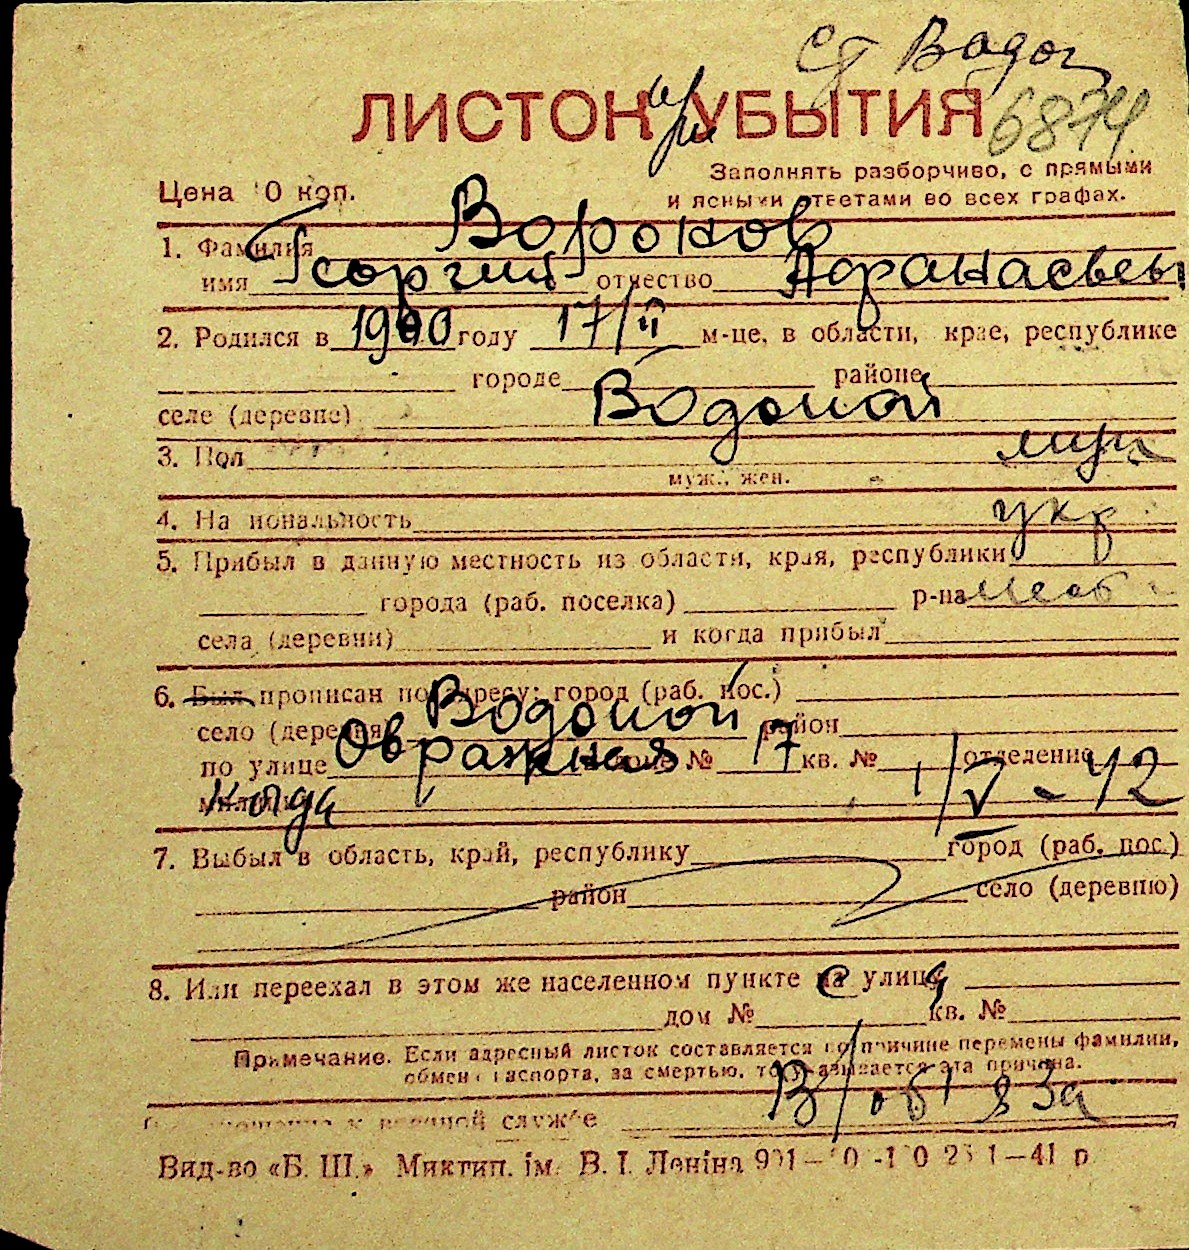 Ст Водоп
ЛИСТОК при УБЫТИЯ
6874
Заполнять разборчиво, с прямыми
Цена 10 коп. и ясными ответами во всех графах.
1. Фамилия Воронов
имя Георгий отчество Афанасьев
2. Родился в 1900 году 17/II м-це, в области, крае, республике
городе районе
селе (деревне) Водопой
3. Пол муж
муж., жен.
4. Национальность укр
5. Прибыл в данную местность из области, края, республики
города (раб. поселка) р-на
села (деревни) и когда прибыл
6. Был прописан по адресу: город (раб. пос.)
село (деревня) Водопой район
по улице Овражная № 17 кв. № отделение
когда 1/V - 42
7. Выбыл в область, край, республику город (раб. пос.)
район село (деревню)
8. Или переехал в этом же населенном пункте на улицу
дом № кв. №
Примечание. Если адресный листок составляется по причине перемены фамилии,
обмена паспорта, за смертью, то указывается эта причина.
В/об
военной службе
Вид-во «Б. Ш.» Миктип. ім. В. І. Леніна 41 р.